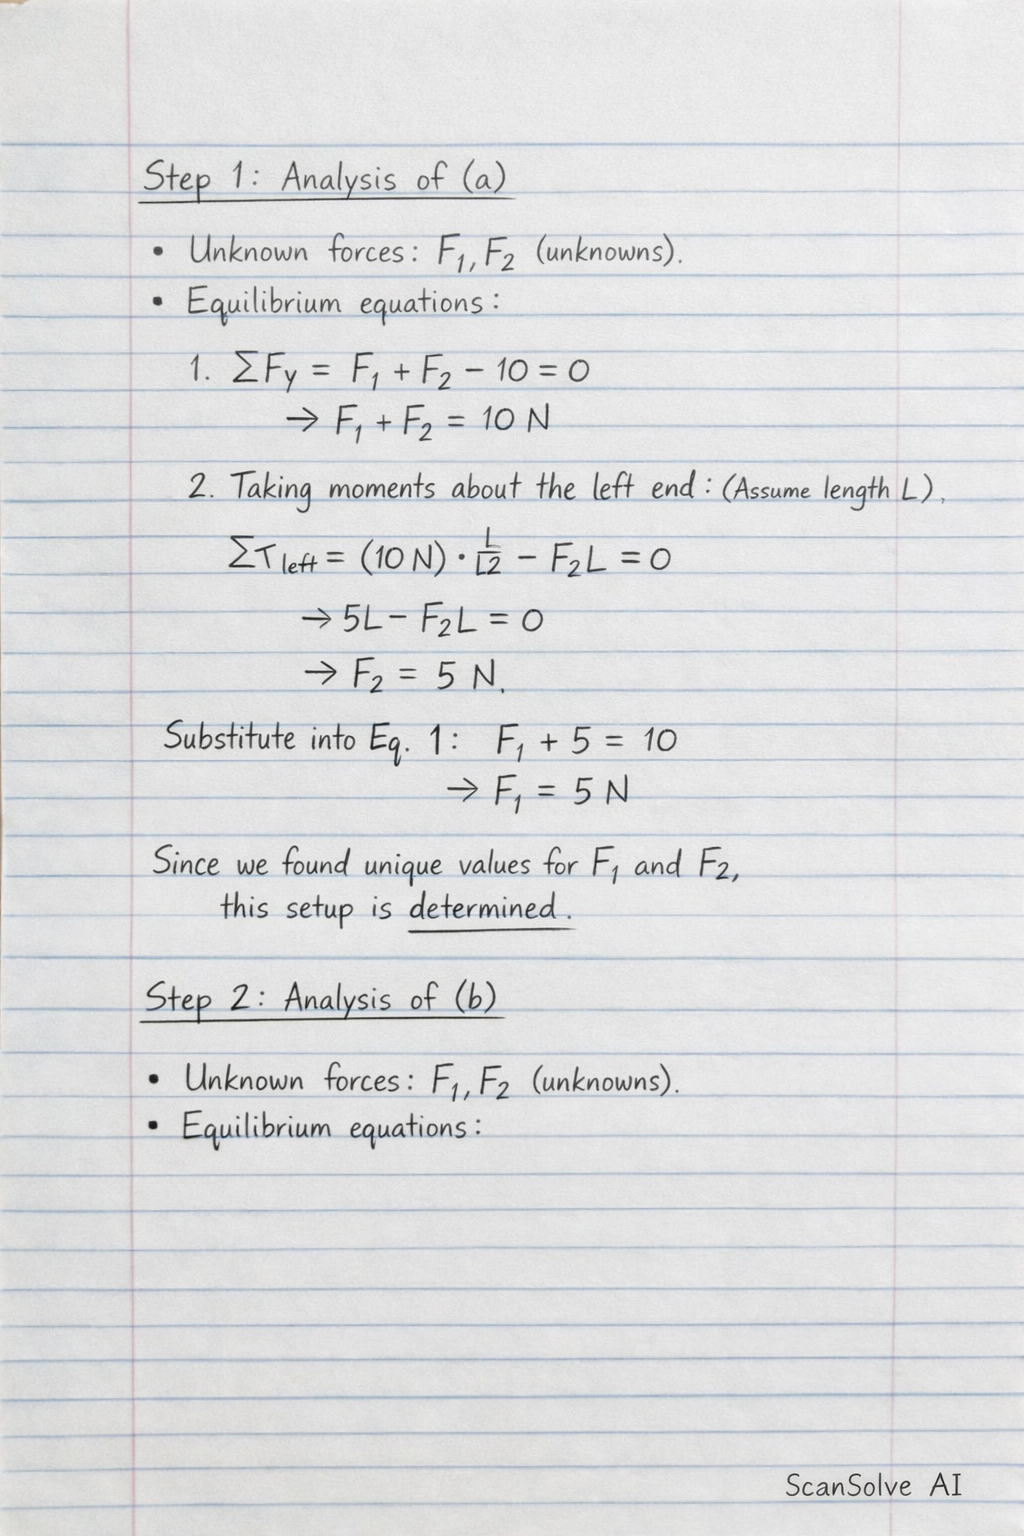 Step 1: Analysis of (a)
• Unknown forces: F₁, F₂ (unknowns).
• Equilibrium equations:
1. ΣFy = F₁ + F₂ − 10 = 0
→ F₁ + F₂ = 10 N
2. Taking moments about the left end: (Assume length L).
Στ left = (10 N) · L/L2 − F₂L = 0
→ 5L − F₂L = 0
→ F₂ = 5 N.
Substitute into Eq. 1: F₁ + 5 = 10
→ F₁ = 5 N
Since we found unique values for F₁ and F₂,
this setup is determined.
Step 2: Analysis of (b)
• Unknown forces: F₁, F₂ (unknowns).
• Equilibrium equations:
ScanSolve AI